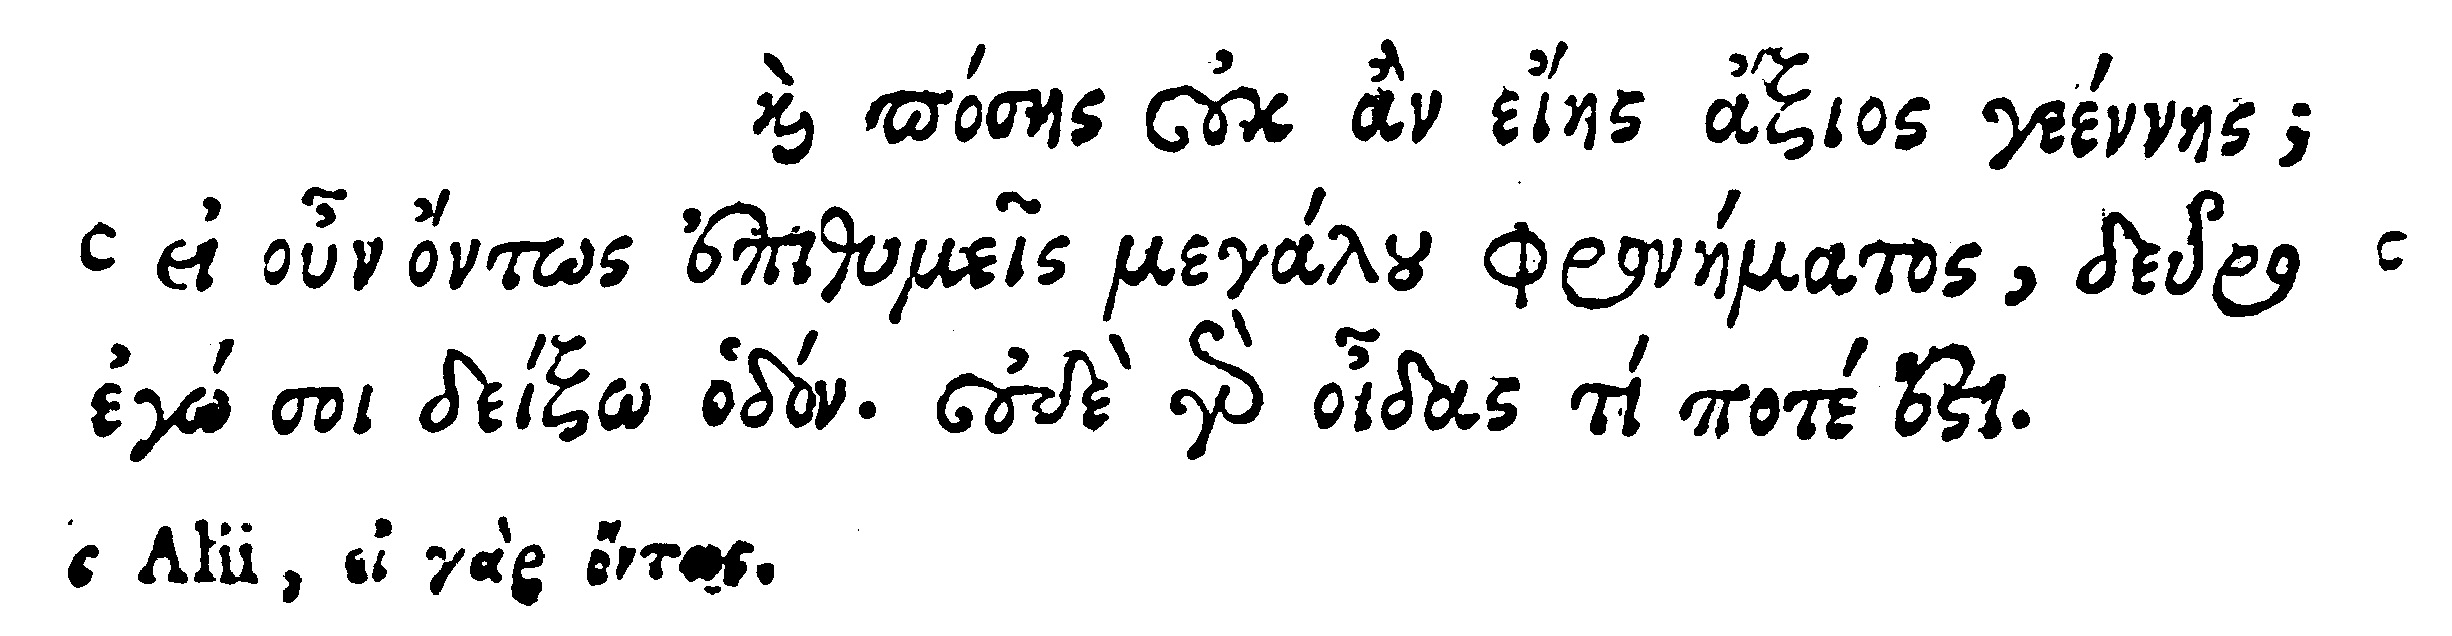 καὶ πόσης οὐκ ἂν εἴης ἄξιος γεέννης;
c εἰ οὖν ὄντως ἐπιθυμεῖς μεγάλου φρονήματος, δεῦρο c
ἐγώ σοι δείξω ὁδόν. οὐδὲ γὰρ οἶδας τί ποτέ ἐστι.
c Alii, εἰ γὰρ ὄντως.